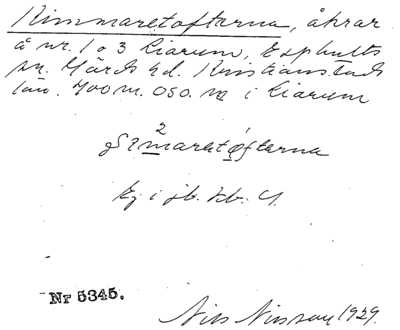 Rimmaretofterna, åkrar
å nr. 1 o 3 Liarum, Esphults
sn. Gärds hd. Kristianstads
län. 700 m. OSO. om i Liarum
2
maratofterna
Ej i jb. hb. 4.
Nr 5345.
Nils Nilsson 1929.